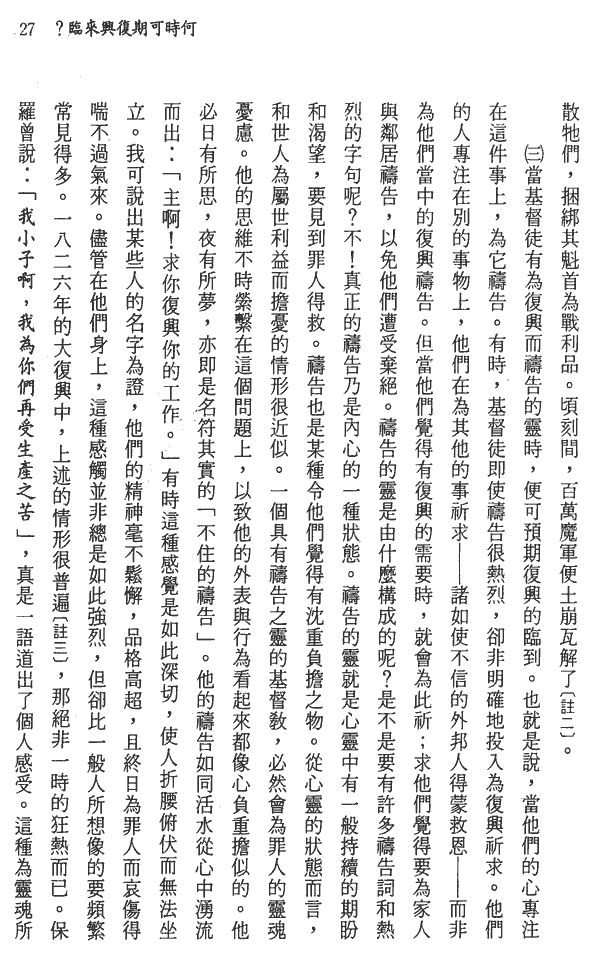 何時可期復興來臨？ 27
散牠們，捆綁其魁首為戰利品。頃刻間，百萬魔軍便土崩瓦解了〔註二〕。
㈢當基督徒有為復興而禱告的靈時，便可預期復興的臨到。也就是說，當他們的心專注
在這件事上，為它禱告。有時，基督徒即使禱告很熱烈，卻非明確地投入為復興祈求。他們
的人專注在別的事物上，他們在為其他的事祈求——諸如使不信的外邦人得蒙救恩——而非
為他們當中的復興禱告。但當他們覺得有復興的需要時，就會為此祈；求他們覺得要為家人
與鄰居禱告，以免他們遭受棄絕。禱告的靈是由什麼構成的呢？是不是要有許多禱告詞和熱
烈的字句呢？不！真正的禱告乃是內心的一種狀態。禱告的靈就是心靈中有一般持續的期盼
和渴望，要見到罪人得救。禱告也是某種令他們覺得有沈重負擔之物。從心靈的狀態而言，
和世人為屬世利益而擔憂的情形很近似。一個具有禱告之靈的基督教，必然會為罪人的靈魂
憂慮。他的思維不時縈繫在這個問題上，以致他的外表與行為看起來都像心負重擔似的。他
必日有所思，夜有所夢，亦即是名符其實的「不住的禱告」。他的禱告如同活水從心中湧流
而出：「主啊！求你復興你的工作。」有時這種感覺是如此深切，使人折腰俯伏而無法坐
立。我可說出某些人的名字為證，他們的精神毫不鬆懈，品格高超，且終日為罪人而哀傷得
喘不過氣來。儘管在他們身上，這種感觸並非總是如此強烈，但卻比一般人所想像的要頻繁
常見得多。一八二六年的大復興中，上述的情形很普遍〔註三〕，那絕非一時的狂熱而已。保
羅曾說：「我小子啊，我為你們再受生產之苦」，真是一語道出了個人感受。這種為靈魂所